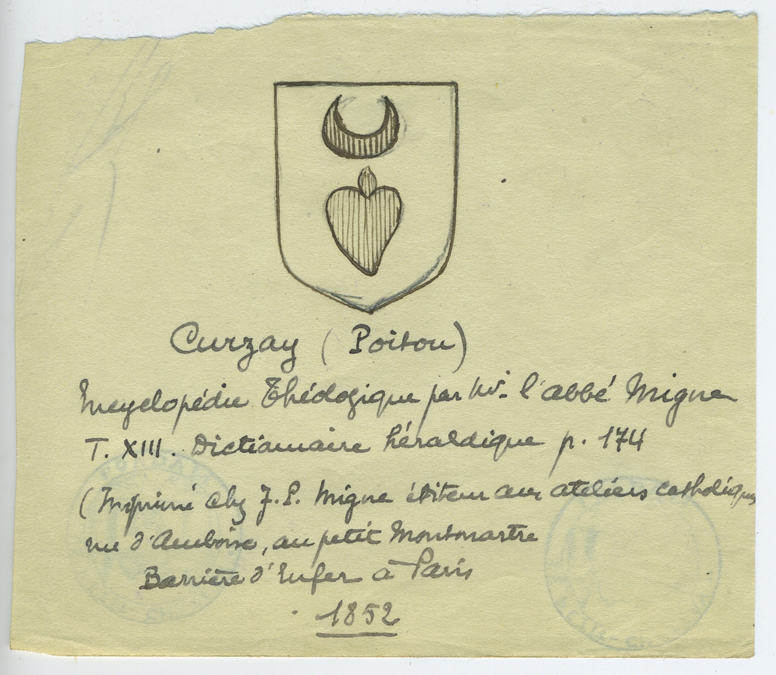 Curzay (Poitou)
Encyclopédie Théologique par Mr. l'abbé Migne
T. XIII. Dictionnaire héraldique p. 174
(Imprimé chez J. P. Migne éditeur aux ateliers catholiques
rue d'Amboise, au petit Montmartre
Barrière d'Enfer à Paris
1852